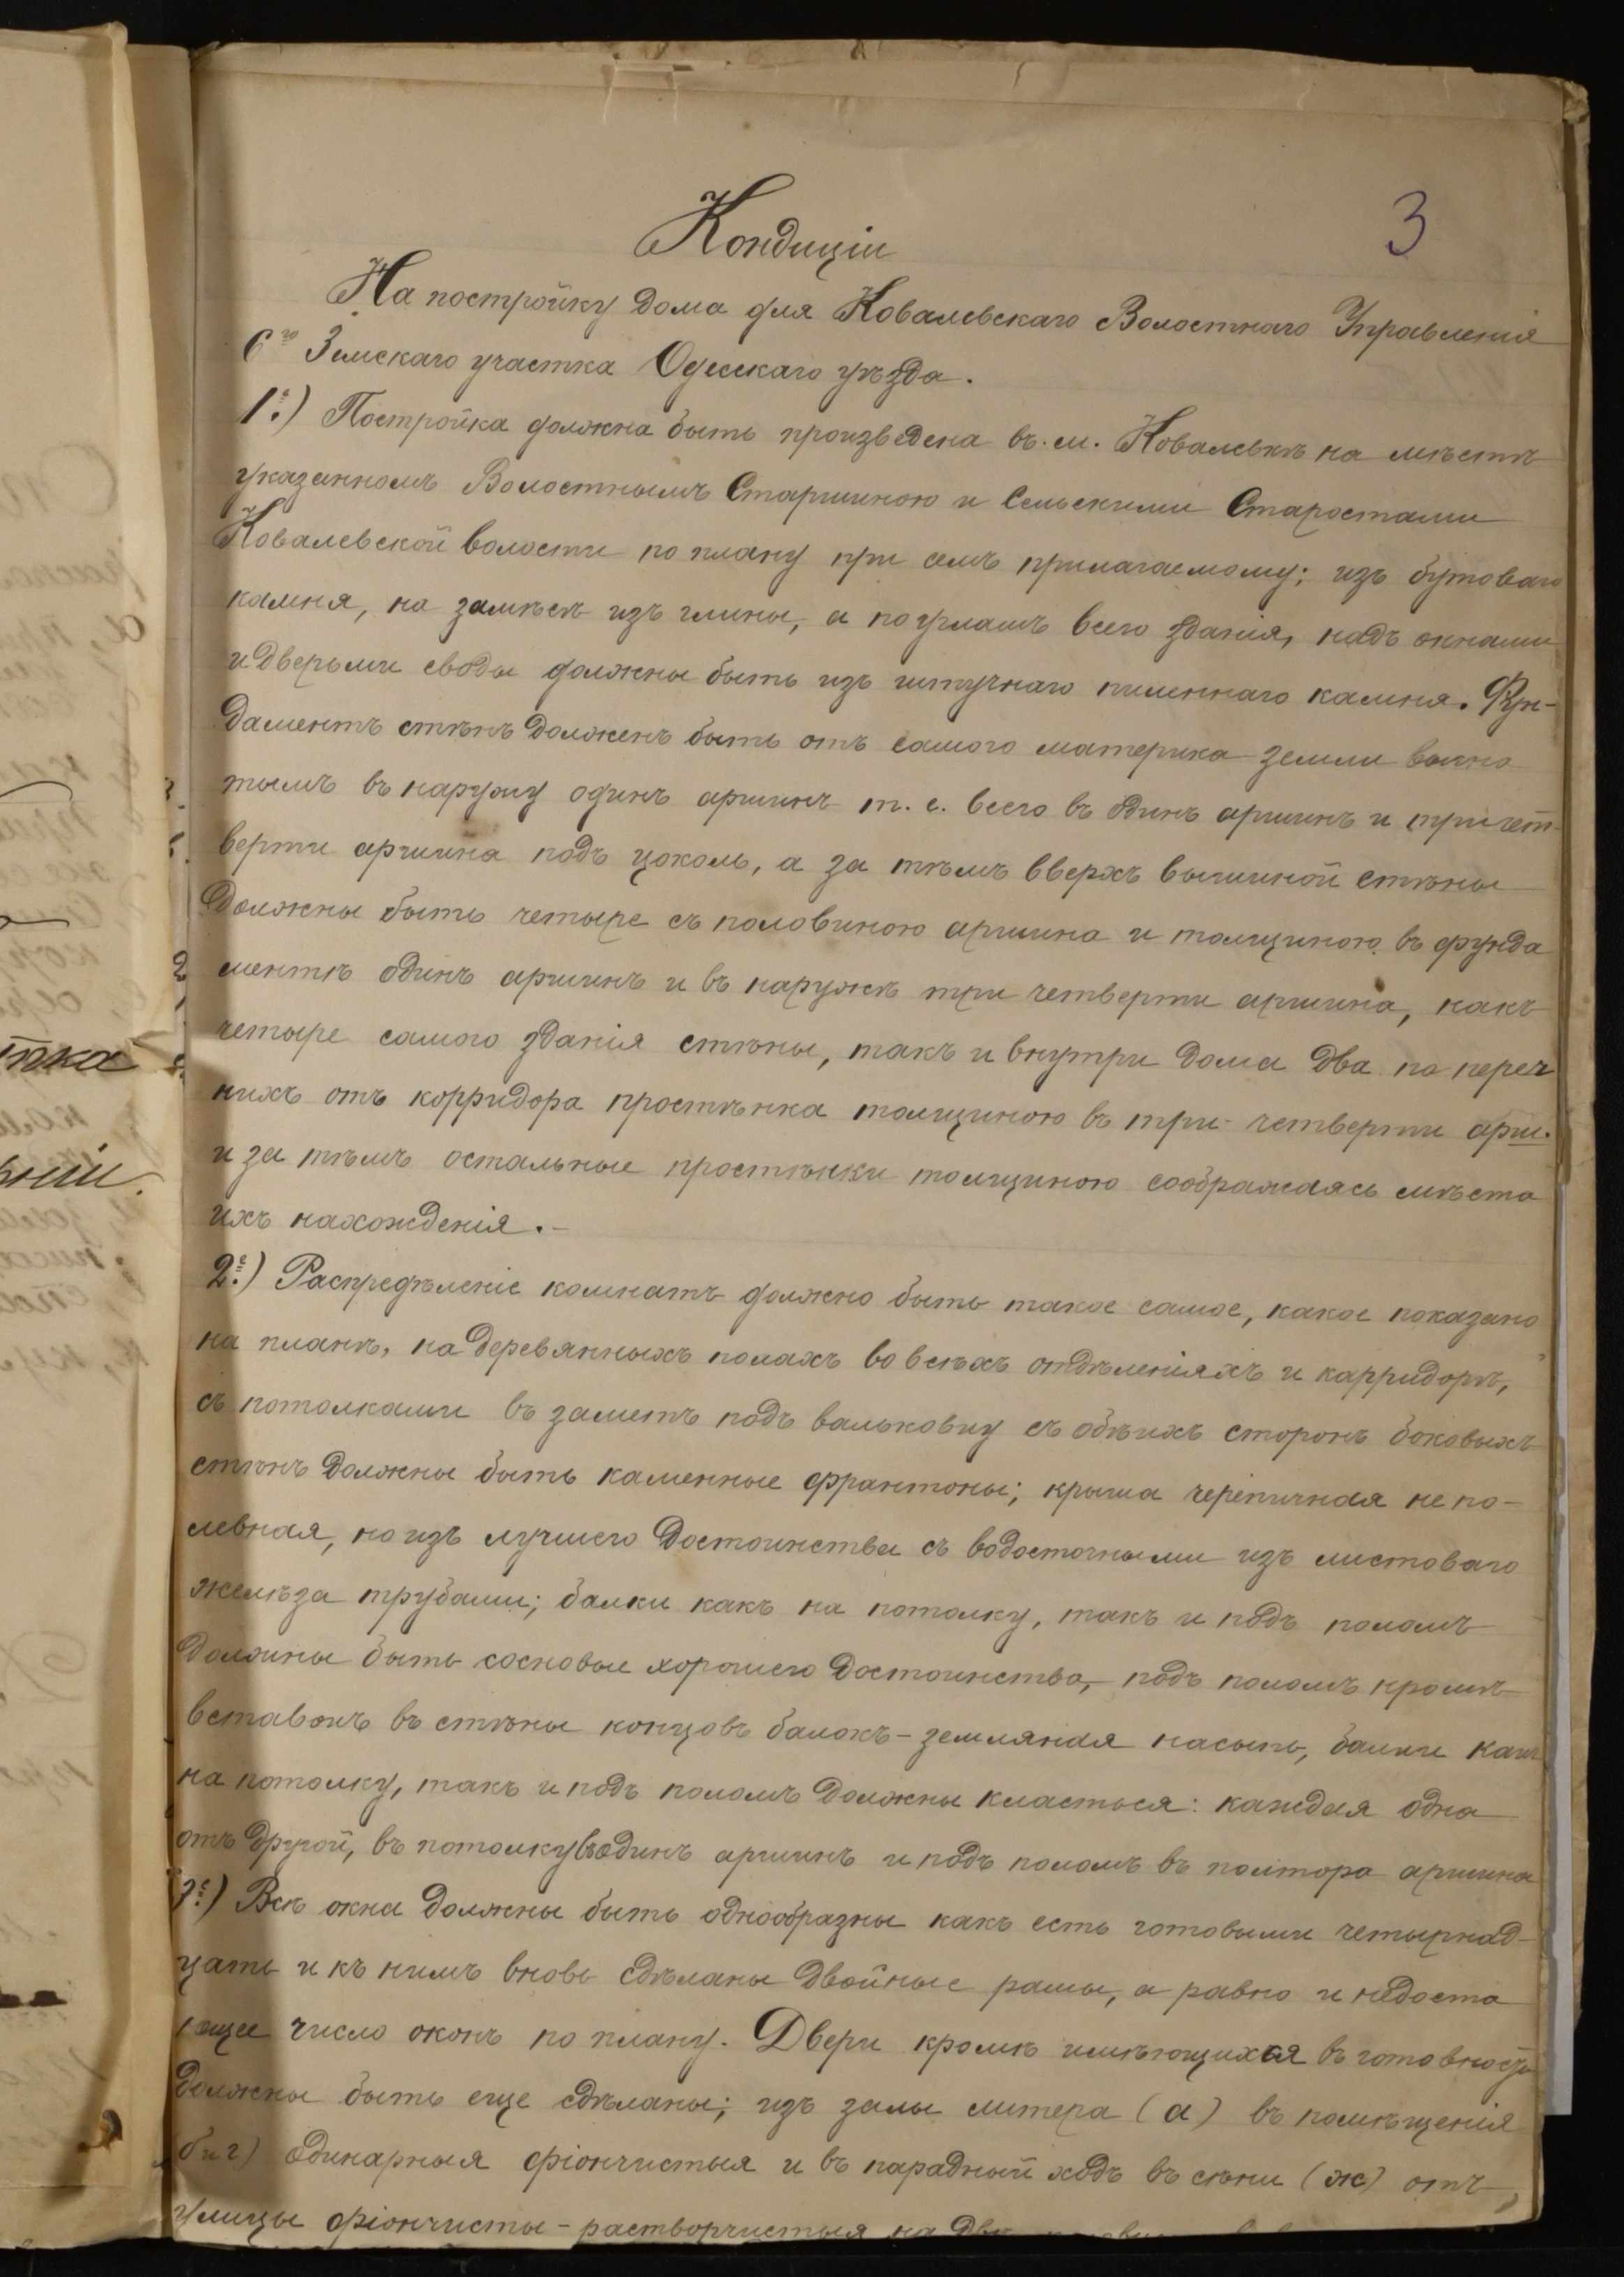 3
Кондиціи
На постройку дома для Ковалевскаго Волостнаго Управленія
6го Земскаго участка Одесскаго уѣзда.
1е.) Постройка должна быть произведена въ м. Ковалевкѣ на мѣстѣ
указанномъ Волостнымъ Старшиною и Сельскими Старостами
Ковалевской волости по плану при семъ прилагаемому; изъ бутоваго
камня, на замѣсѣ изъ глины, а по угламъ всего зданія, надъ окнами
и дверьми своды должны быть изъ штучнаго пиленнаго камня. Фун-
даментъ стѣнъ долженъ быть отъ самого материка земли
тымъ въ наружу одинъ аршинъ т. е. всего въ одинъ аршинъ и тричет-
верти аршина подъ цоколь, а за тѣмъ вверхъ вышиной стѣны
должны быть четыре съ половиною аршина и толщиною въ фунда
ментѣ одинъ аршинъ и въ наружѣ три четверти аршина, какъ
четыре самого зданія стѣны, такъ и внутри дома два по переч
нихъ отъ корридора простѣнка толщиною въ три четверти арш.
и за тѣмъ остальные простѣнки толщиною соображаясь мѣста
ихъ нахожденія.-
2е.) Распредѣленіе комнатъ должно быть такое самое, какое показано
на планѣ, на деревянныхъ полахъ во всѣхъ отдѣленіяхъ и карридорѣ,
съ потолками въ заметъ подъ вальковку съ обѣихъ сторонъ боковыхъ
стѣнъ должны быть каменные франтоны; крыша черепичная не по-
левная, но изъ лучшего достоинства съ водосточными изъ листоваго
желѣза трубами; балки какъ на потолку, такъ и подъ поломъ
должны быть сосновые хорошего достоинства, подъ поломъ кромѣ
вставокъ въ стѣны концовъ балокъ - земляная насыпь, балки какъ
на потолку, такъ и подъ поломъ должны класться: каждая одна
отъ другой, въ потолку въ одинъ аршинъ и подъ поломъ въ полтора аршина
3е.) Всѣ окна должны быть однообразны какъ есть готовыми четырнад-
цать и къ нимъ вновь сдѣланы двойные рамы, а равно и недоста
ющее число оконъ по плану. Двери кромѣ имѣющихся въ готовность
должны быть еще сдѣланы; изъ залы литера (а) въ помѣщенія
(б и г) одинарныя фіончистыя и въ парадный ходъ въ сѣни (ж) отъ
улицы фіончисты - растворчистыя на двѣ